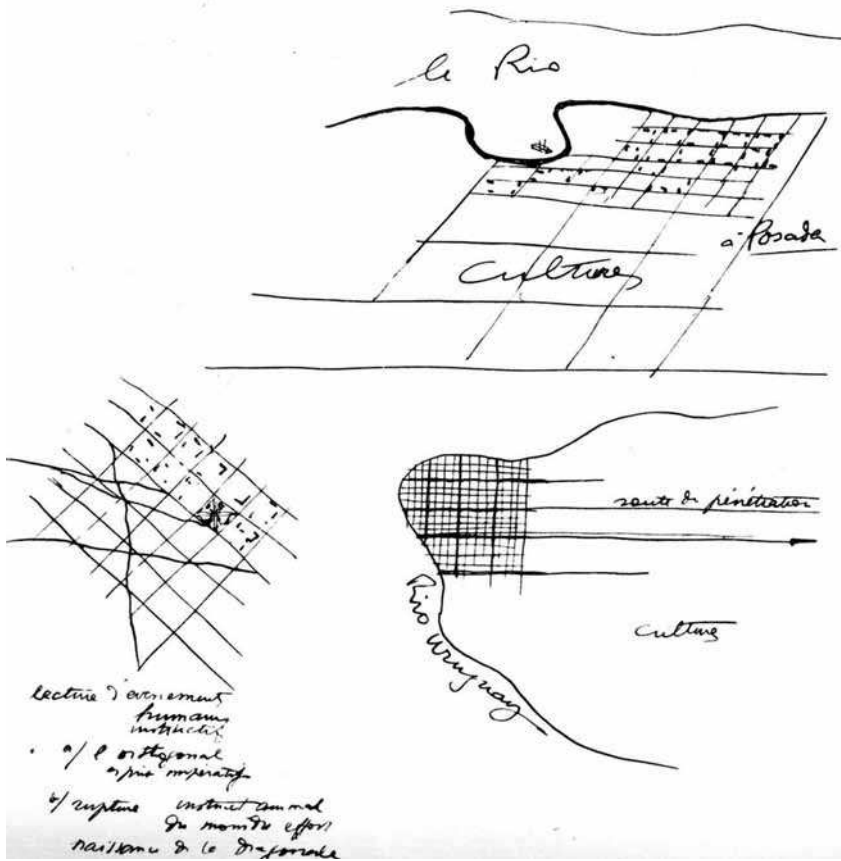 le Rio
à Posada
Cultures
route de pénétration
Rio Uruguay
cultures
lecture d'évènements
humains
instinctif
a/ l'orthogonal
esprit impératif
b/ rupture instinct animal
du moindre effort
naissance de la diagonale